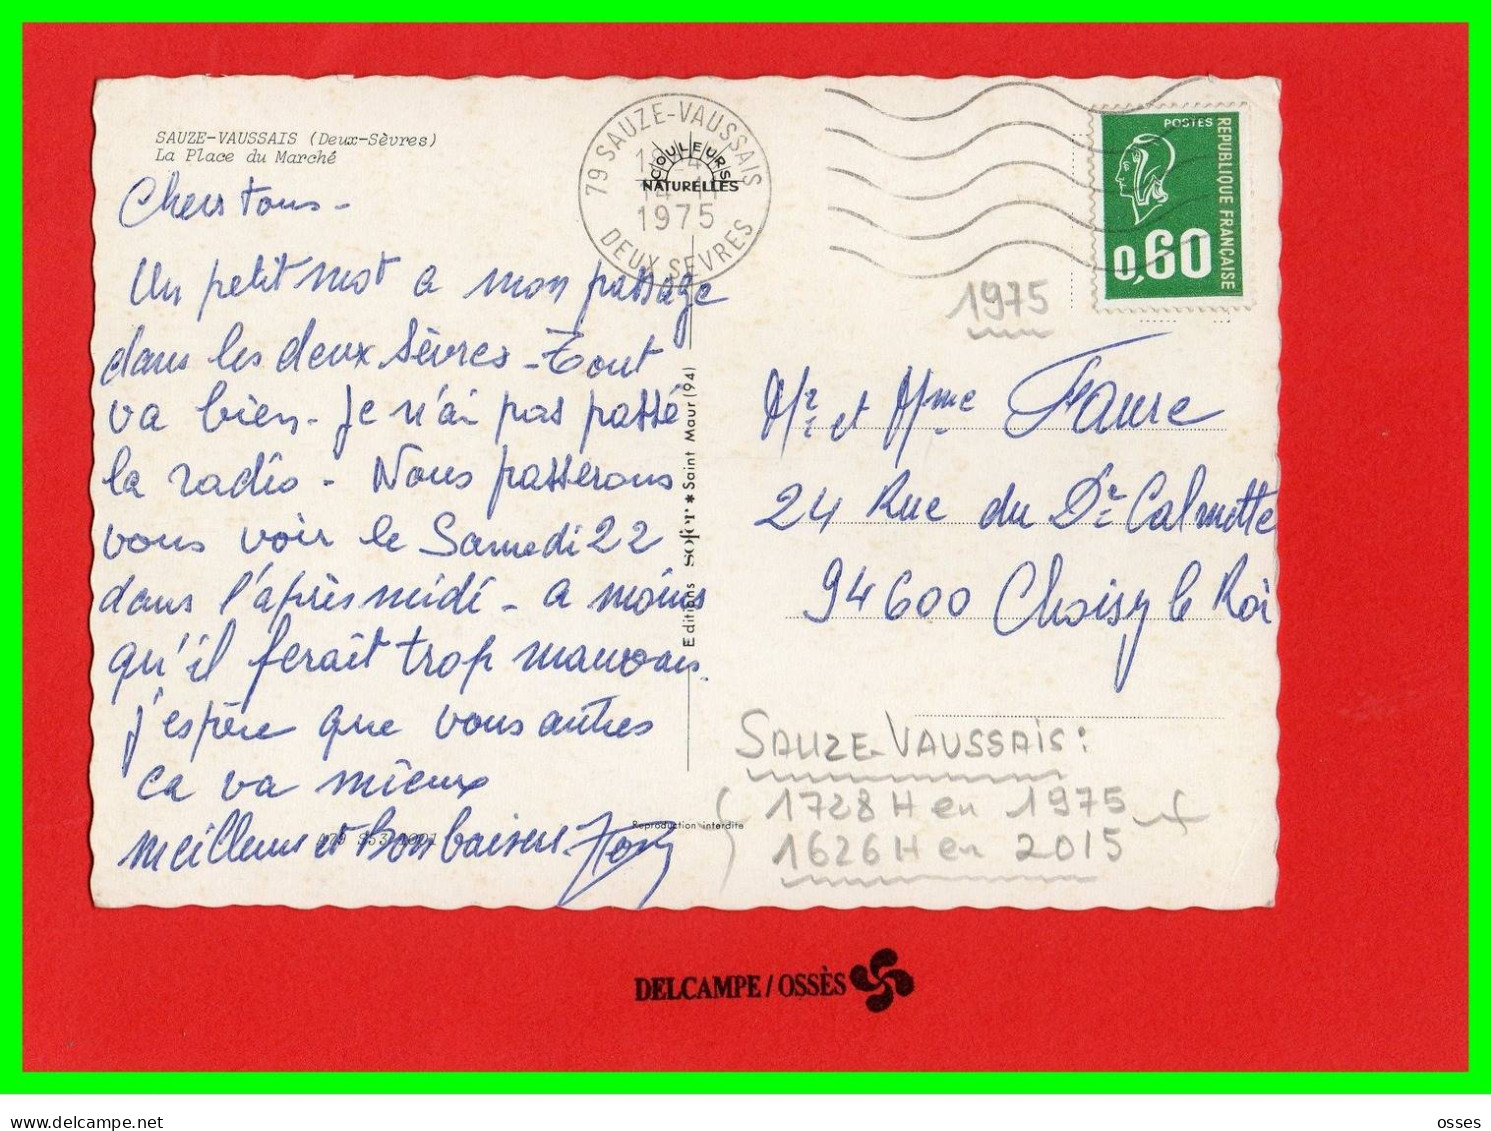 SAUZE-VAUSSAIS (Deux-Sèvres)
La Place du Marché
Chers tous -
Un petit mot a mon passage
dans les deux Sèvres - Tout
va bien - Je n'ai pas passé
la radio - Nous passerons
vous voir le Samedi 22
dans l'après midi - a moins
qu'il ferait trop mauvais.
j'espère que vous autres
ca va mieux
meilleurs et Bons baisers
79 SAUZE-VAUSSAIS
1975
DEUX SEVRES
COULEURS
NATURELLES
POSTES
REPUBLIQUE FRANÇAISE
0,60
1975
Editions sofer ★ Saint Maur (94)
Mr. et Mme Faure
24 Rue du Dr. Calmette
94600 Choisy le Roi
SAUZE-VAUSSAIS :
1728 H en 1975
1626 H en 2015
Reproduction interdite
DELCAMPE/OSSÈS
delcampe.net
osses